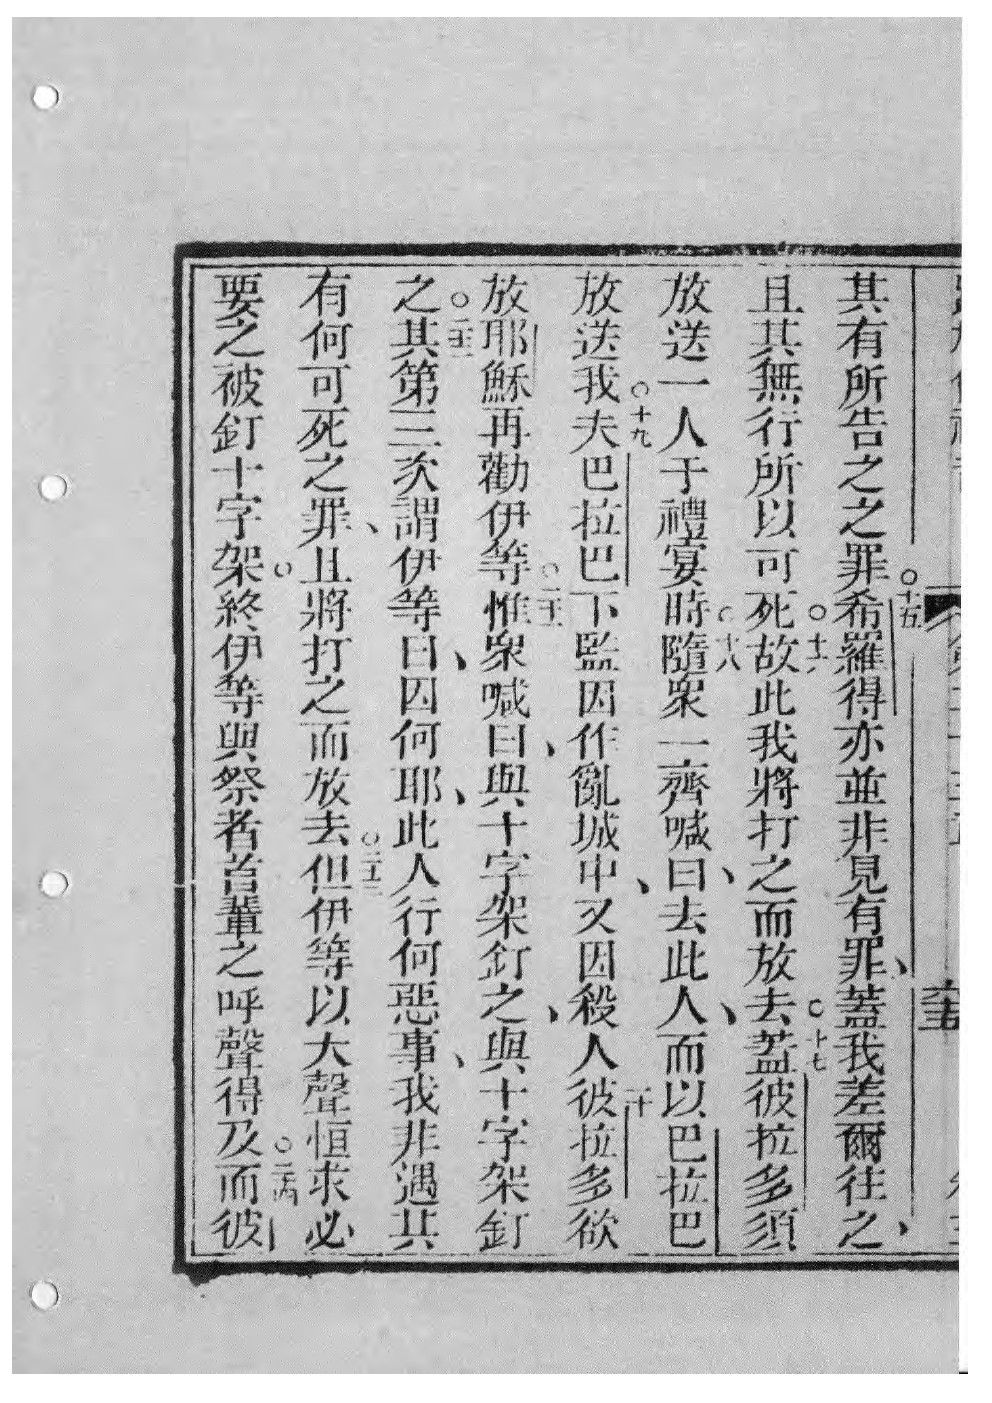 其有所告之之罪○十五希羅得亦並非見有罪、蓋我差爾往之、
且其無行所以可死○十六故此我將打之而放去○十七蓋彼拉多須
放送一人于禮宴時○十八隨眾一齊喊曰、去此人、而以巴拉巴
放送我○十九夫巴拉巴下監因作亂城中、又因殺人二十彼拉多欲
放耶穌再勸伊等○二十一惟眾喊曰、與十字架釘之、與十字架釘
之○二十二其第三次謂伊等曰、因何耶、此人行何惡事、我非遇其
有何可死之罪、且將打之而放去○二十三但伊等以大聲恒求必
要之被釘十字架○終伊等與祭者首輩之呼聲得及○二十四而彼